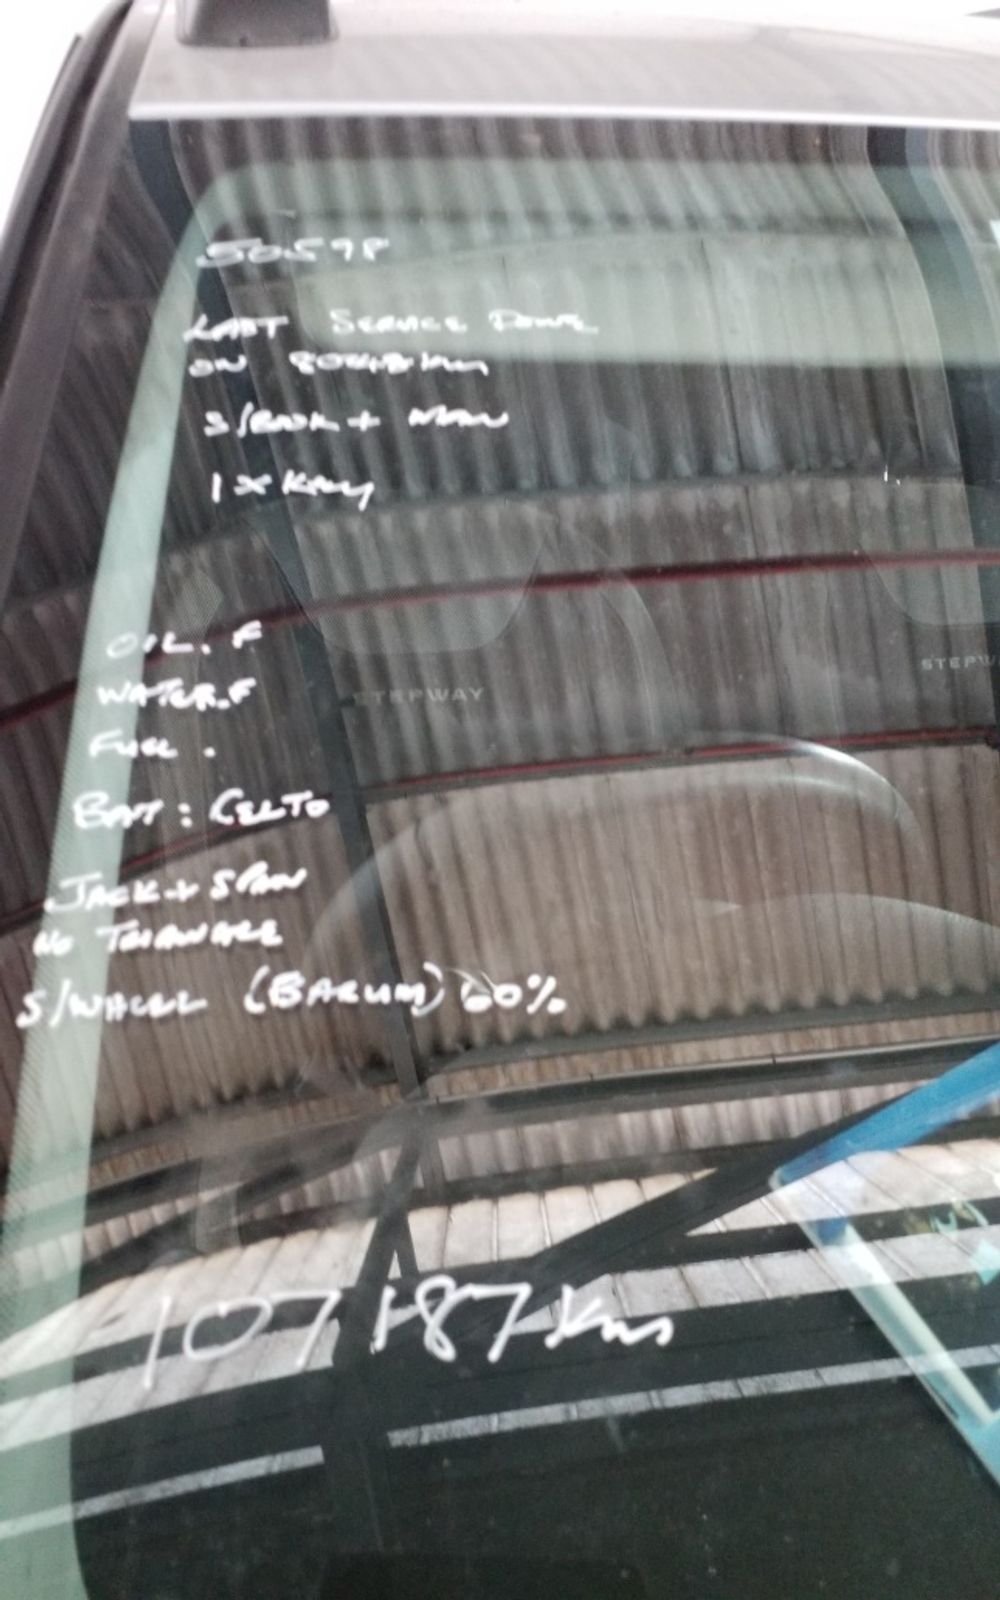 50598
LAST SERVICE DONE
ON km
S/BOOK + MAN
1 x KEY
OIL. F
WATER. F
STEPWAY
STEPW
FUEL .
BATT : CELTO
JACK + SPAN
NO TRIANGLE
S/WHEEL (BARUM) 60%
107187 Km